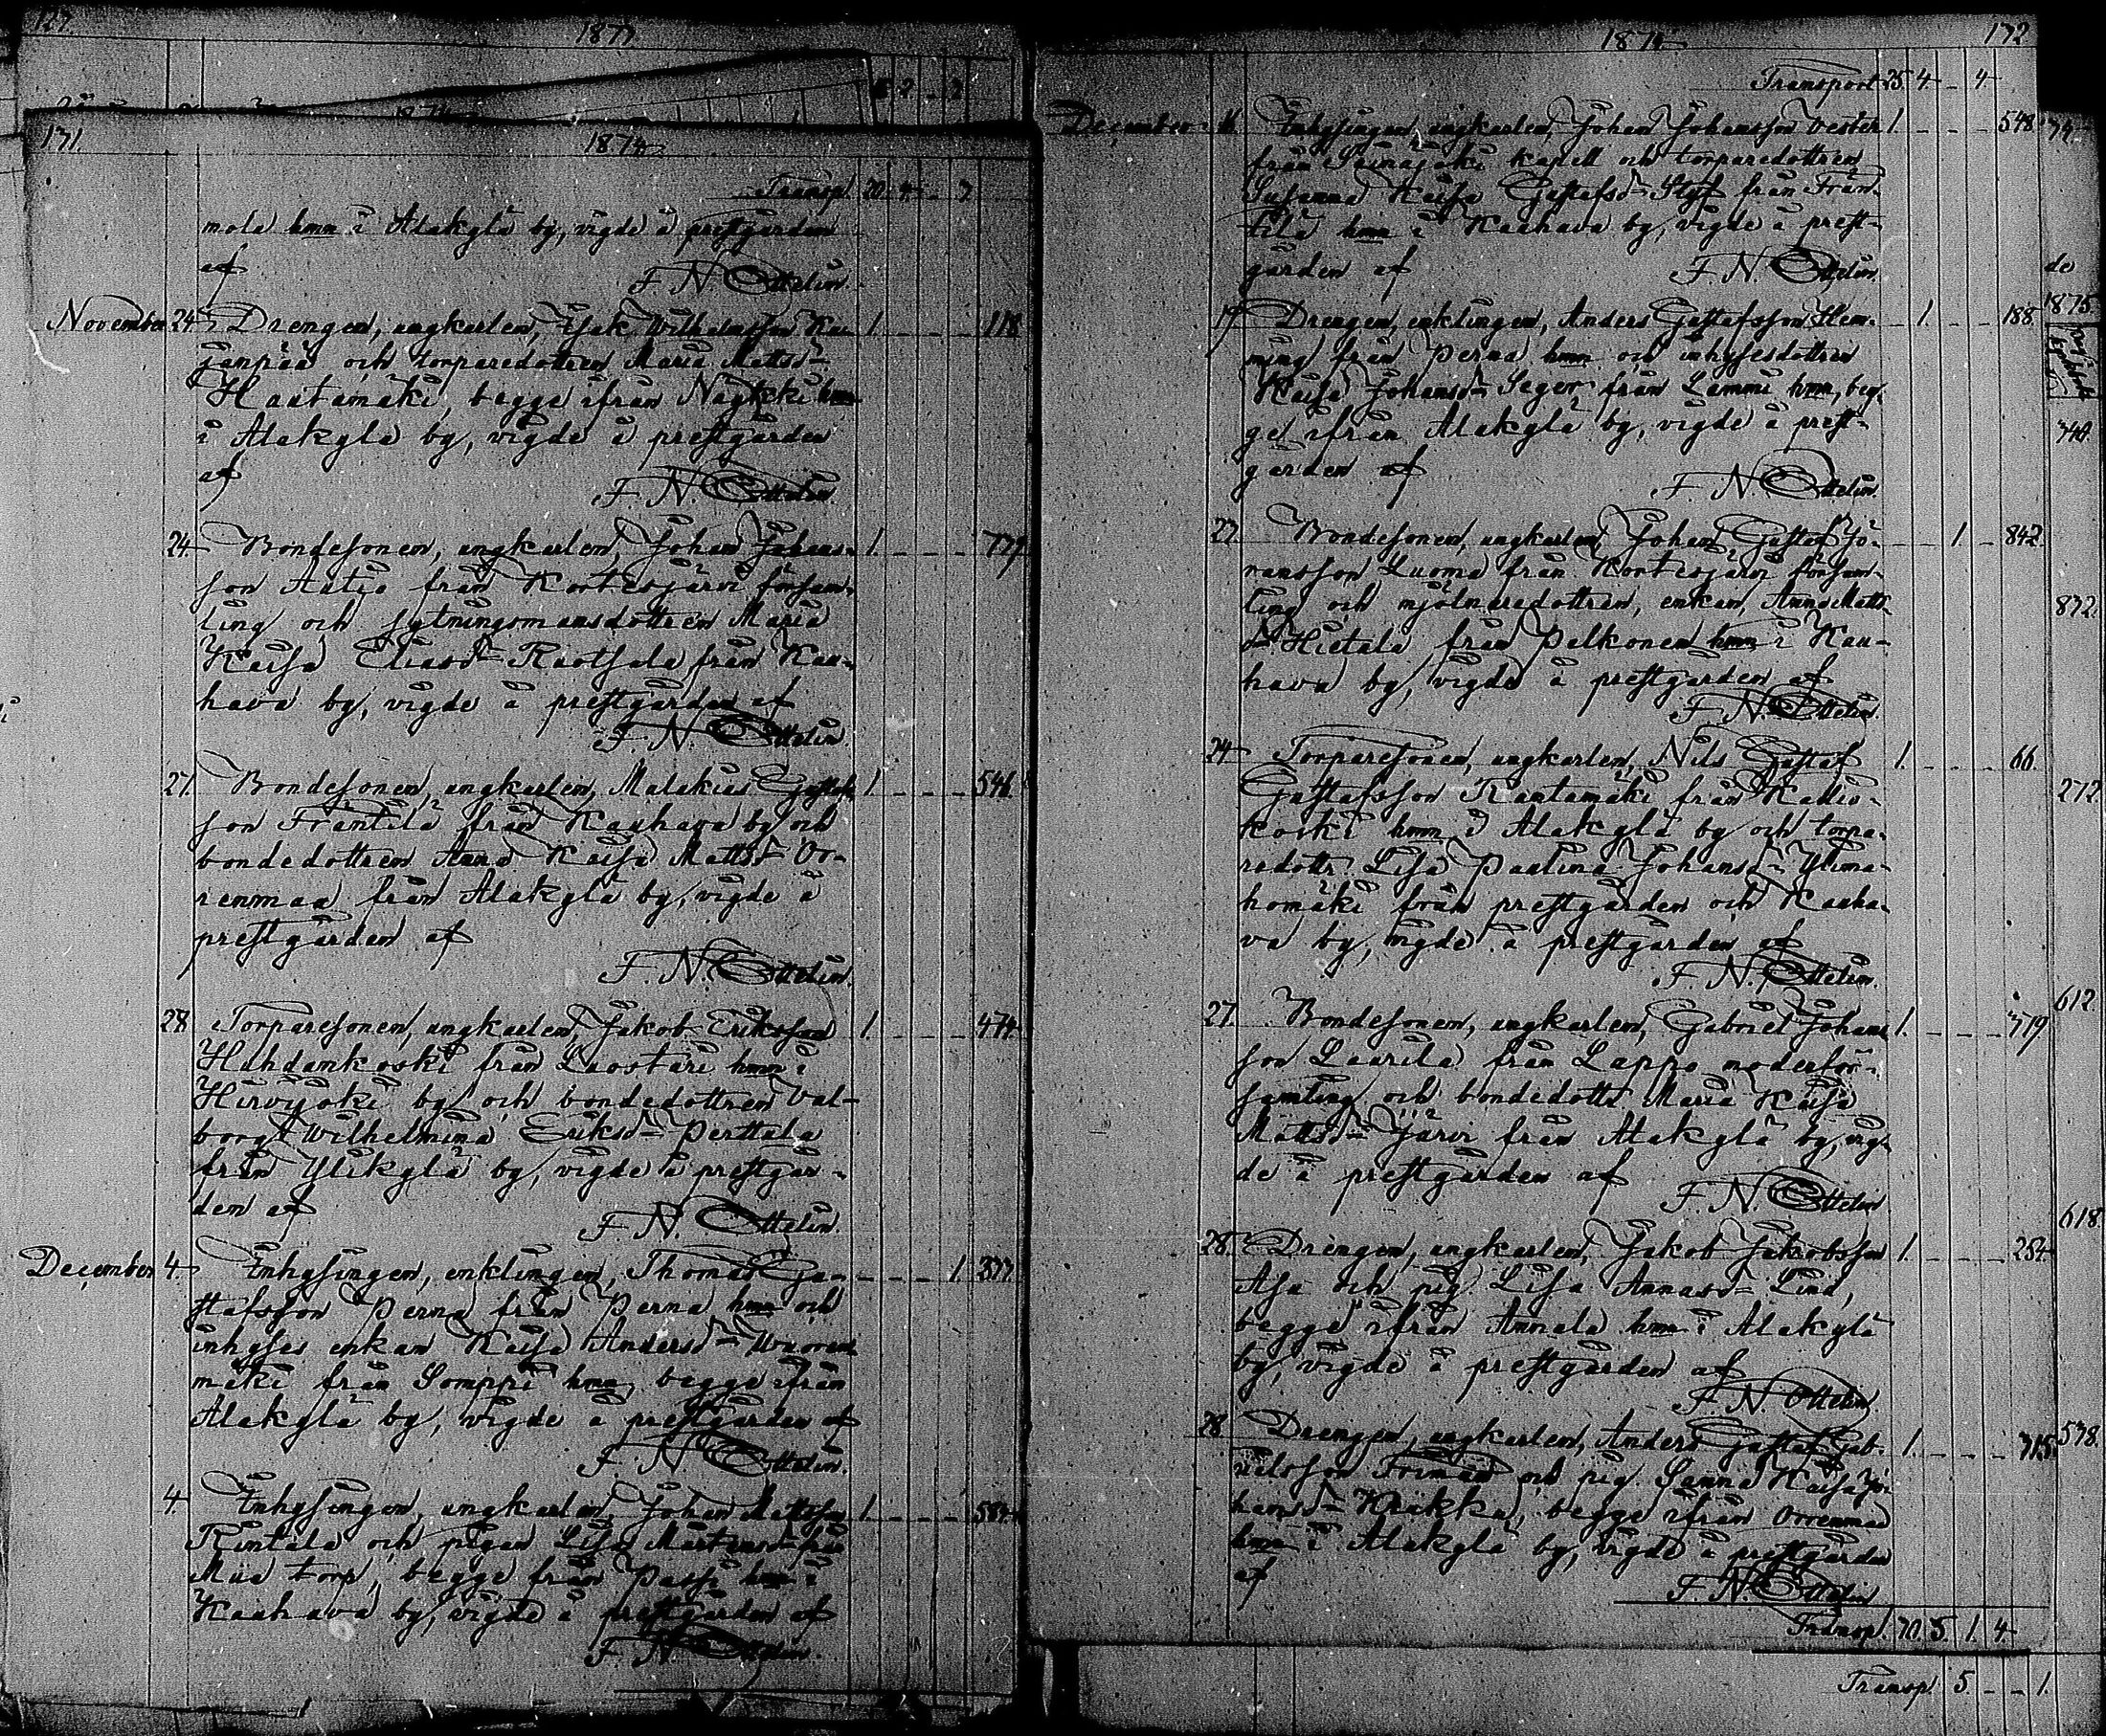 127.
1877.
171.
1874.
Transp. 20. 4. - 3
mola hmn i Alakylä by, vigde å prestgården
af
F. N. Ottelin.
November 24. Drengen, ungkarlen, Isak Wilhelmsson Kau- 1. 118
janpää och torparedottren Maria Mattsd-
Hautamäki, begge ifrån Nägkki hmn
i Alakylä by, vigde å prestgården
af
F. N. Ottelin
24. Bondesonen, ungkarlen, Johan Johans- 1. 779
son Aatio från Kortesjärvi försam-
ling och sytningsmansdottren Maria
Kaisa Eliasd- Ruotsala från Kau-
hava by, vigde å prestgården af
F. N. Ottelin.
27. Bondesonen, ungkarlen, Malakias Gustafs- 1. 546.
son Fräntilä från Kauhava by och
bondedottren Anna Kaisa Mattsd- Or-
renmaa från Alakylä by, vigde å
prestgården af
F. N. Ottelin.
28 Torparesonen, ungkarlen, Jakob Eriksson 1. 474.
Hahdankoski från Luostari hmn i
Hirvijoki by och bondedottren Val-
borg Wilhelmina Eriksd- Perttula
från Ylikylä by, vigde å prestgår-
den af
F. N. Ottelin.
December 4. Inhysingen, enklingen, Thomas Gu- 1. 377.
stafsson Perna från Perna hmn och
inhyses enkan Kaisa Andersd- Wuoren
mäki från Somppi hmn, begge ifrån
Alakylä by, vigde å prestgården af
F. N. Ottelin.
4. Inhysingen, ungkarlen, Johan Mattsson 1. 584.
Rintala och pigan Lisa Mårtensd- från
Mia torp, begge från Passi hmn i
Kauhava by, vigde å prestgården af
F. N. Ottelin.
1874. 172
Transport 25. 4. - 4.
December 11. Inhysingen, ungkarlen, Johan Johansson Wester 1. 548.
från Seinäjoki kapell och torparedottren
Susanna Kaisa Gustafsd- Styf från Frän-
tilä hmn i Kauhava by, vigde å prest-
gården af F. N. Ottelin.
19 Drengen, enklingen, Anders Gustafsson Hem- 1. 188.
ming från Perna hmn och inhysesdottren
Kaisa Johansd- Seger från Lammi hmn, beg-
ge ifrån Alakylä by, vigde å prest-
gården af
F. N. Ottelin.
27. Bondesonen, ungkarlen, Johan Gustaf Jö- 1. 842.
ransson Luoma från Kortesjärvi försam-
ling och mjölnaredottren, enkan, Anna Matts-
d- Hietala från Pelkonen hmn i Kau-
hava by, vigde å prestgården af
F. N. Ottelin.
24 Torparesonen, ungkarlen, Nils Gustaf 1. 66.
Gustafsson Rautamäki från Kallio-
koski hmn i Alakylä by och torpa-
redottr. Lisa Paulina Johansd- Ylima-
homäki från prestgården och Kauha-
va by, vigde å prestgården af
F. N. Ottelin.
27. Bondesonen, ungkarlen, Gabriel Johans- 1. 719
son Laurila från Lappo moderför-
samling och bondedottr. Maria Kaisa
Mattsd- Järvi från Alakylä by, vig-
de å prestgården af
F. N. Ottelin
28. Drengen, ungkarlen, Jakob Jakobsson 1. 254.
Asu och pig. Lisa Annasd- Lind,
begge ifrån Annala hmn i Alakylä
by, vigde å prestgården af
F. N. Ottelin.
28 Drengen, ungkarlen, Anders Gustaf Gab- 1. 715.
rielsson Forsman och pig. Sanna Kaisa Jo-
hansd- Krikku, begge ifrån Orrenmaa
hmn i Alakylä by, vigde å prestgården
af
F. N. Ottelin
Transp. 30. 5. 1. 4.
Transp. 5. - - 1.
74
de
1875.
749.
872.
272.
612.
618.
538.